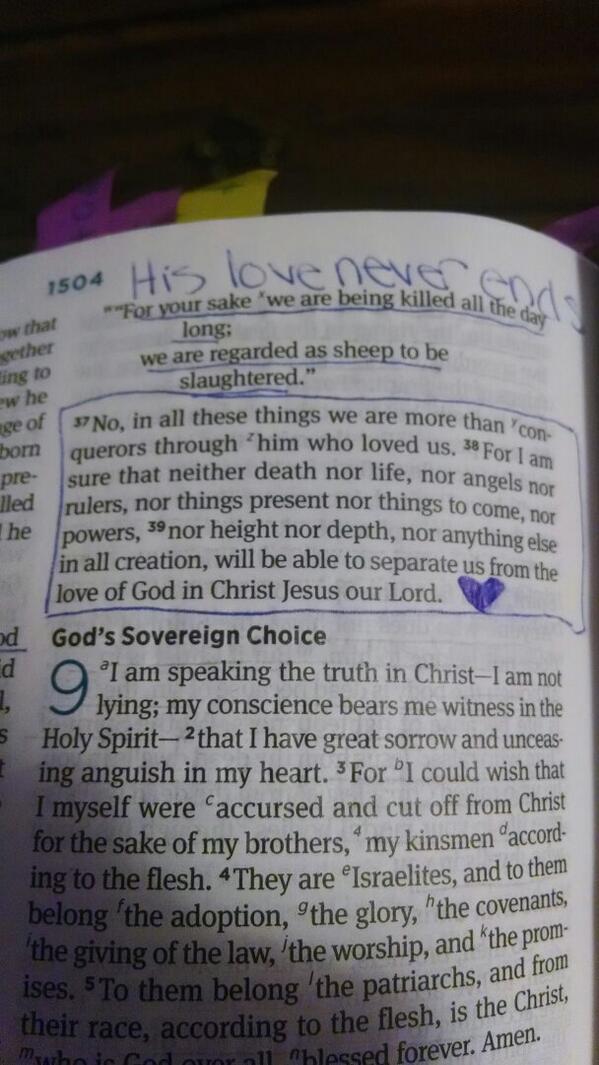 1504 His love never ends
""For your sake ˣwe are being killed all the day
long;
we are regarded as sheep to be
slaughtered."
³⁷No, in all these things we are more than ʸcon-
querors through ᶻhim who loved us. ³⁸For I am
sure that neither death nor life, nor angels nor
rulers, nor things present nor things to come, nor
powers, ³⁹nor height nor depth, nor anything else
in all creation, will be able to separate us from the
love of God in Christ Jesus our Lord.
God's Sovereign Choice
9 ᵃI am speaking the truth in Christ—I am not
lying; my conscience bears me witness in the
Holy Spirit—²that I have great sorrow and unceas-
ing anguish in my heart. ³For ᵇI could wish that
I myself were ᶜaccursed and cut off from Christ
for the sake of my brothers, ⁴my kinsmen ᵈaccord-
ing to the flesh. ⁴They are ᵉIsraelites, and to them
belong ᶠthe adoption, ᵍthe glory, ʰthe covenants,
ⁱthe giving of the law, ʲthe worship, and ᵏthe prom-
ises. ⁵To them belong ˡthe patriarchs, and from
their race, according to the flesh, is the Christ,
ᵐwho is God over all, ⁿblessed forever. Amen.